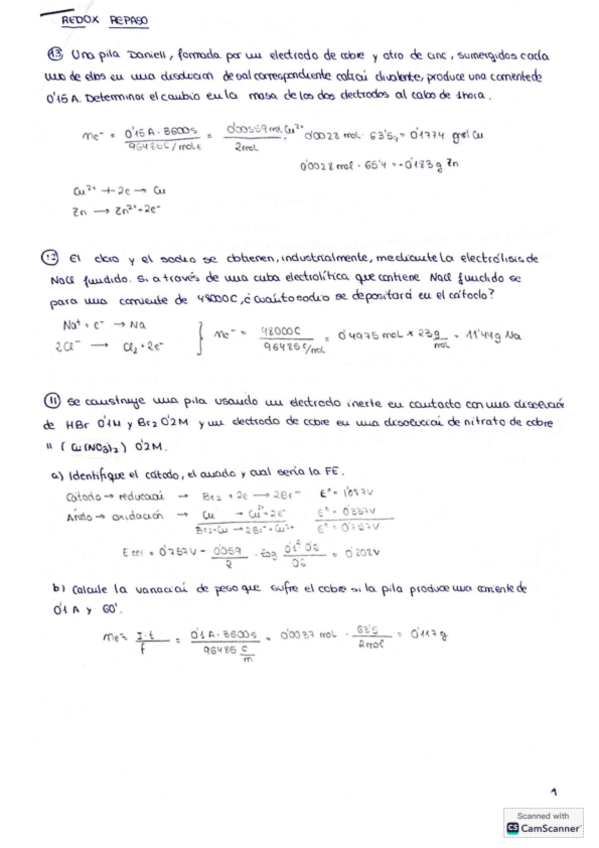 REDOX REPASO
13 Una pila Daniell, formada por un electrodo de cobre y otro de cinc, sumergidos cada
uno de ellos en una disolucion de sal correspondiente catión divalente, produce una corriente de
0'15 A. Determinar el cambio en la masa de los dos electrodos al cabo de 1 hora.
ne⁻ = 0'15 A · 3600s / 96485 C/mol e = 0'00559 mol Cu²⁺ / 2mol 0'0028 mol · 63'5g = 0'1774 g Cu
0'0028 mol · 65'4 = -0'183 g Zn
Cu²⁺ + 2e → Cu
Zn → Zn²⁺ + 2e⁻
12 El cloro y el sodio se obtienen, industrialmente, mediante la electrólisis de
NaCl fundido. Si a través de una cuba electrolítica que contiene NaCl fundido se
para una corriente de 48000C, ¿cuánto sodio se depositará en el cátodo?
Na⁺ + e⁻ → Na
2Cl⁻ → Cl₂ + 2e⁻
} ne⁻ = 48000C / 96485 C/mol = 0'4975 mol × 23 g/mol = 11'44 g Na
11 Se construye una pila usando un electrodo inerte en contacto con una disolución
de HBr 0'1M y Br₂ 0'2M y un electrodo de cobre en una disolución de nitrato de cobre
II (Cu(NO₃)₂) 0'2M.
a) Identifique el cátodo, el ánodo y cual sería la FE.
Cátodo → reducción → Br₂ + 2e → 2Br⁻ E° = 1'057V
Ánodo → oxidación → Cu → Cu²⁺ + 2e⁻
Br₂ + Cu → 2Br⁻ + Cu²⁺
E cel = 0'757V - 0'059 / 2 · log
b) Calcule la variación de peso que sufre el cobre si la pila produce una corriente de
0'1 A y 60'.
ne = I·t / f = 0'1 A · 3600s / 96485 C/m = 0'0037 mol · 63'5 / 2mol = 0'117 g
1
Scanned with
CS CamScanner